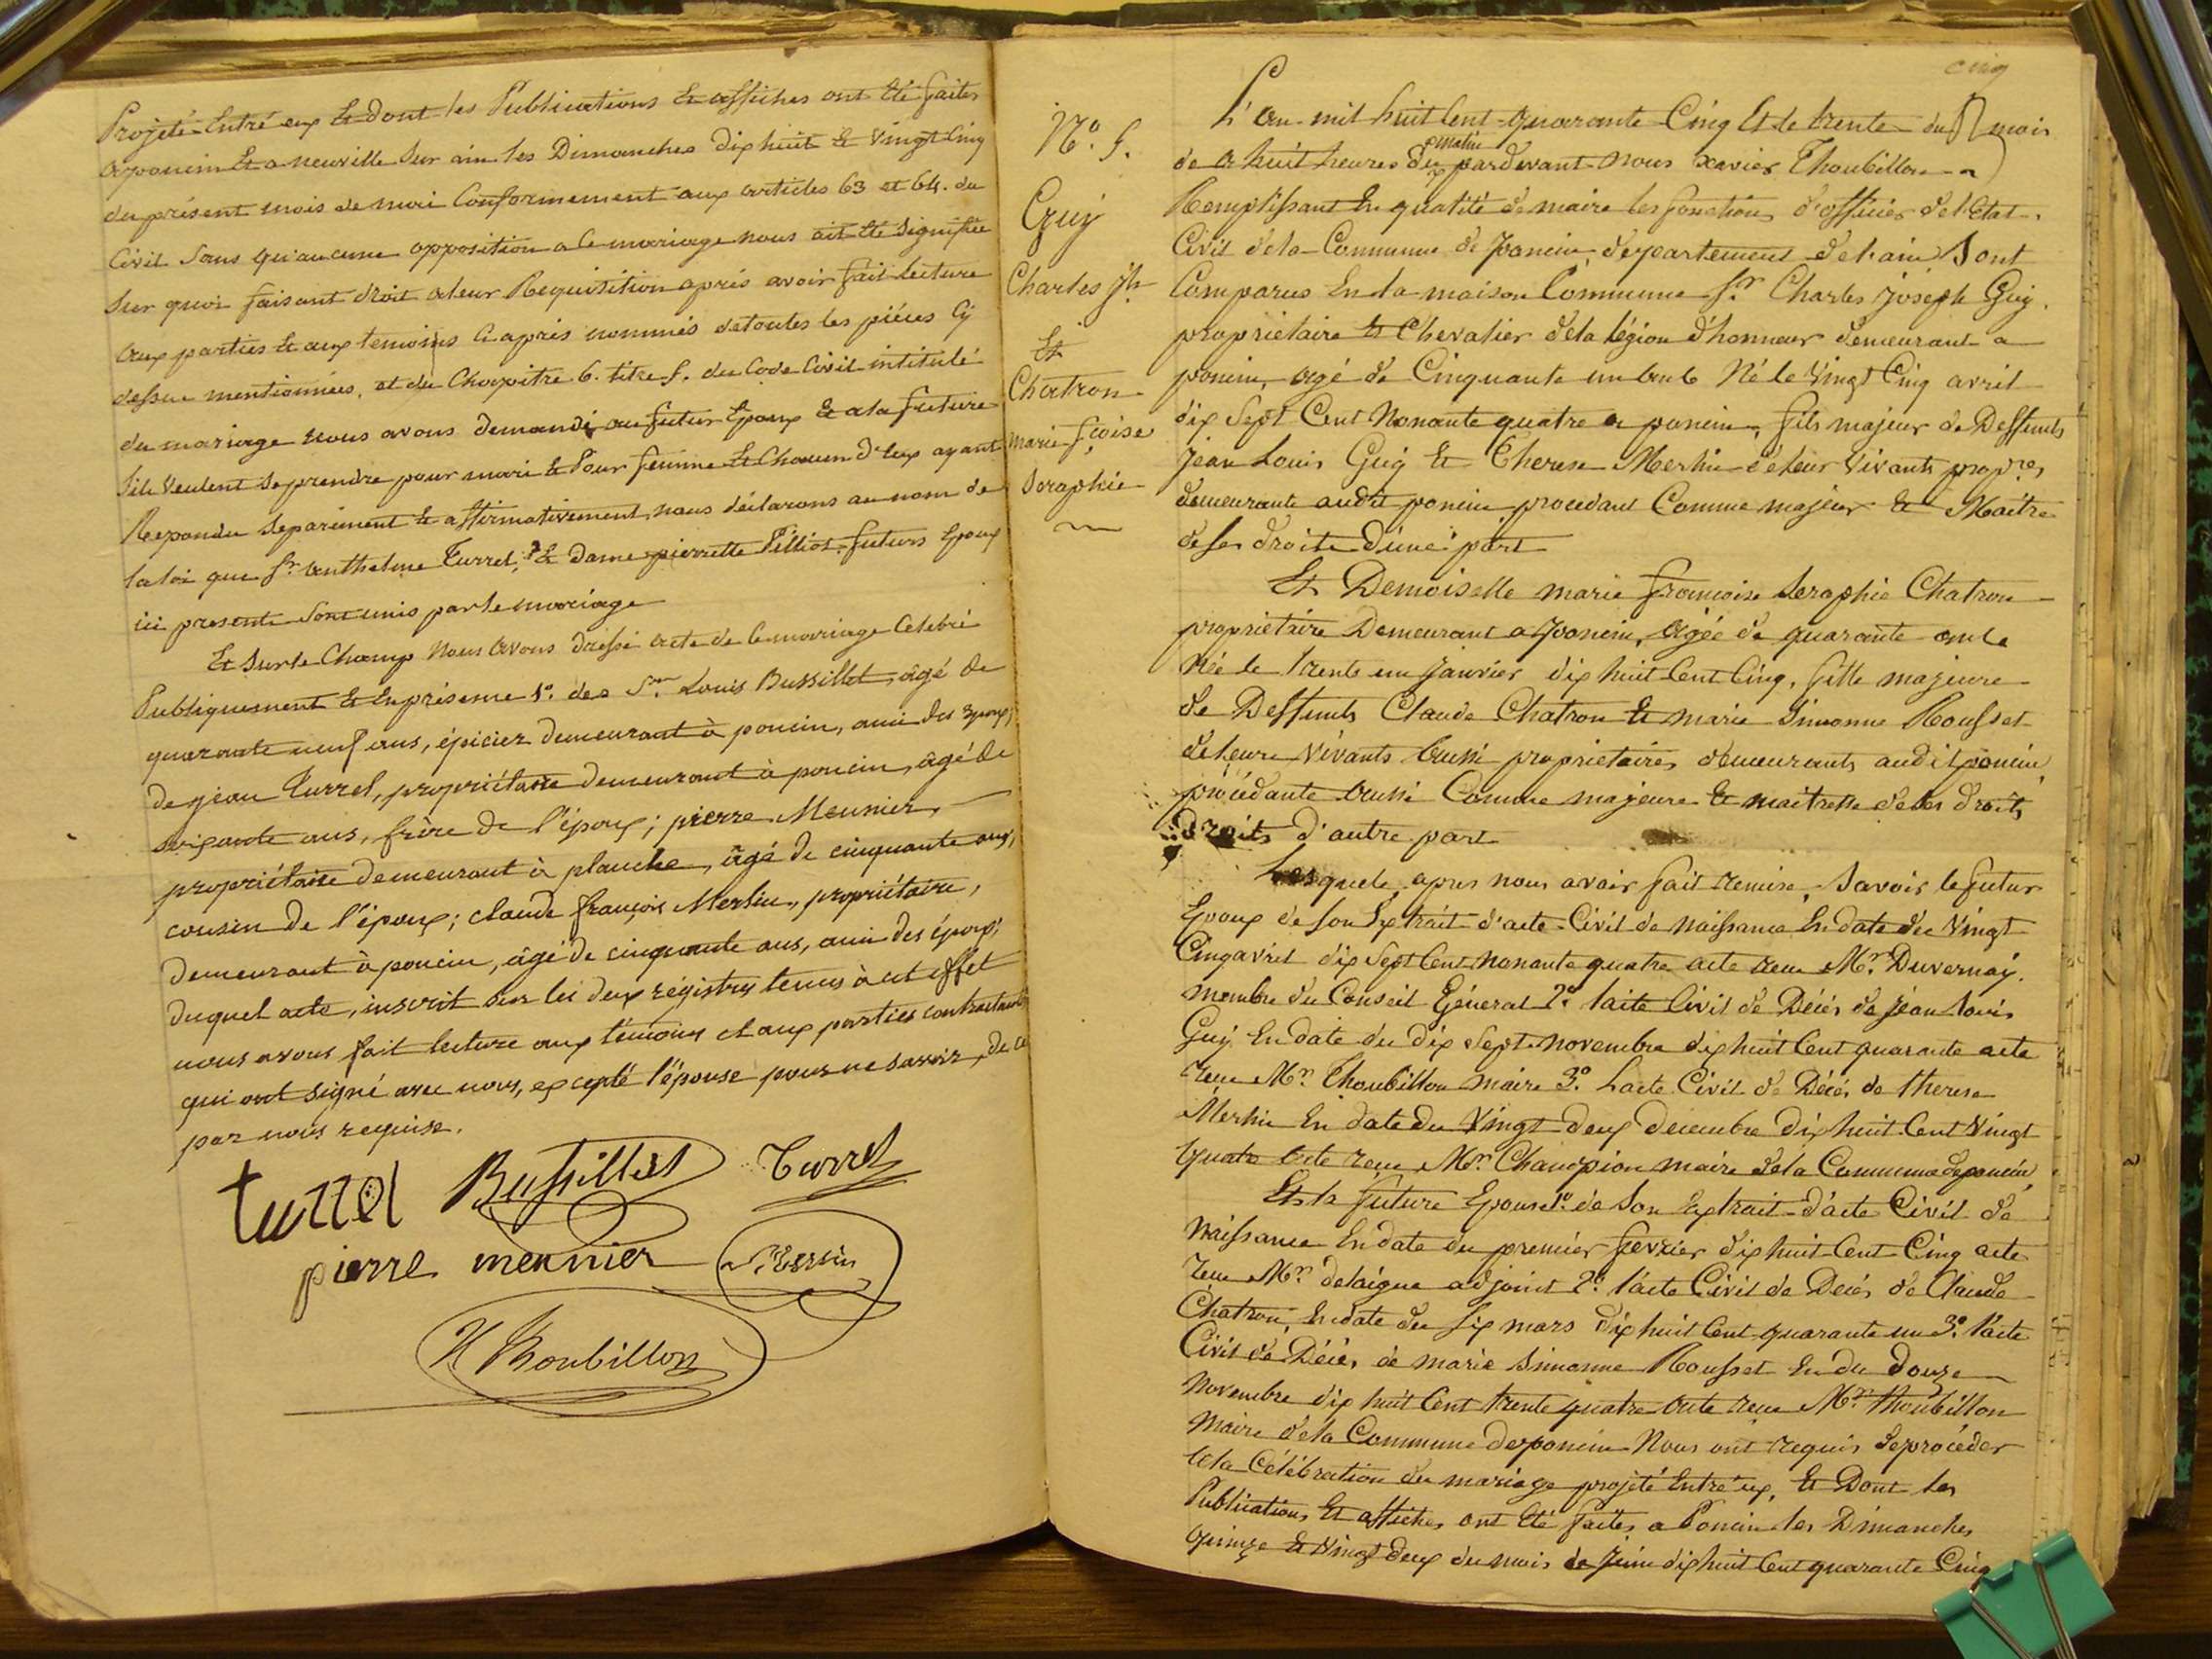 Projeté Entré eux Et dont les Publications Et affiches ont Eté faites
a poncin Et a neuville sur ain les Dimanches Dix huit Et Vingt Cinq
du présent mois de mai Conformement aux articles 63 et 64. du
Civil Sans qu'aucune opposition a ce mariage nous ait Eté Signifiée
Sur quoi faisant droit a leur Requisition aprés avoir fait lecture
aux parties Et aux temoins Ci aprés nommés de toutes les piéces Cy
dessus mentionnées, et du Chapitre 6. titre 5. du Code Civil intitulé
du mariage nous avons demandé au futur Epoux Et a la future
S'ils Veulent se prendre pour mari Et Pour femme Et Chacun d'Eux ayant
Repondu Separément Et affirmativement, nous déclarons au nom de
la loi que Sr. Anthelme Turrel, Et Dame pierrette Pilliot futurs Epoux
ici presents Sont unis par le mariage
Et Sur le Champ Nous avons dressé acte de Ce mariage Celebré
Publiquement Et En présence 1º. des Srs. Louis Bussillet, âgé de
quarante neuf ans, épicier demeurant à poncin, ami des époux;
de jean Turrel, propriétaire demeurant à poncin, âgé de
soixante ans, frère de l'époux; pierre Meunier,
propriétaire demeurant à planche, âgé de cinquante ans,
cousin de l'époux; claude françois Merlin, propriétaire,
demeurant à poncin, âgé de cinquante ans, ami des époux;
duquel acte, inscrit sur les deux régistres tenus à cet effet
nous avons fait lecture aux témoins et aux parties contractantes
qui ont signé avec nous, excepté l'épouse pour ne savoir, de ce
par nous requise.
turrel Bussillet Turrel
pierre meunier
Thoubillon
cinq
Nº. 5.
Guy
Charles Jh
Et
Chatron
marie fçoise
Seraphie
L'an mil huit Cent Quarante Cinq Et le trente du mois
matin
de a huit heures du pardevant nous Xavier Thoubillon
Remplissant En qualité de maire les fonctions d'officier de l'Etat
Civil de la Commune de Poncin, departement de l'ain Sont
Comparus En la maison Commune Sr. Charles Joseph Guy.
propriétaire Et Chevalier de la légion d'honneur demeurant a
poncin, agé de Cinquante un ans Né le Vingt Cinq avril
dix Sept Cent Nonante quatre a poncin, fils majeur de Deffunts
Jean Louis Guy Et Therese Merlin de leur Vivants propres
demeurants audit poncin procedant Comme majeur Et Maitre
de ses droits d'une part
Et Demoiselle marie françoise Seraphie Chatron
propriétaire Demeurant a Poncin, agée de quarante ans
Née le trente un Janvier dix huit Cent Cinq, fille majeure
de Deffunts Claude Chatron Et marie Simonne Rousset
de leurs Vivants aussi propriétaires demeurants audit poncin,
procédante aussi Comme majeure Et maitresse de ses droits
droits d'autre part
Lesquels apres nous avoir fait remise, Savoir le futur
Epoux de son Extrait d'acte Civil de Naissance En date du Vingt
Cinq avril dix Sept Cent nonante quatre acte reçu Mr. Duvernay.
membre du Conseil Général 2º. l'acte Civil de Décés de Jean Louis
Guy En date du dix Sept novembre dix huit Cent quarante acte
reçu Mr. Thoubillon maire 3º. L'acte Civil de Décés de therese
Merlin En date du Vingt deux decembre dix huit Cent Vingt
quatre acte reçu Mr. Champion maire de la Commune de poncin,
Et la future Epouse 1º. de Son Extrait d'acte Civil de
Naissance En date du premier fevrier dix huit Cent Cinq acte
reçu Mr. delaigue adjoint 2º. l'acte Civil de Decés de Claude
Chatron, En date du Six mars dix huit Cent quarante un 3º. l'acte
Civil de Décés de marie Simonne Rousset En du douze
Novembre dix huit Cent trente quatre acte reçu Mr. thoubillon
Maire de la Commune de poncin Nous ont requis de procéder
a la Célébration du mariage projeté Entre eux, Et Dont les
Publications Et affiches ont Eté faites a Poncin les Dimanches
Quinze Et Vingt deux du mois de Juin dix huit Cent quarante Cinq